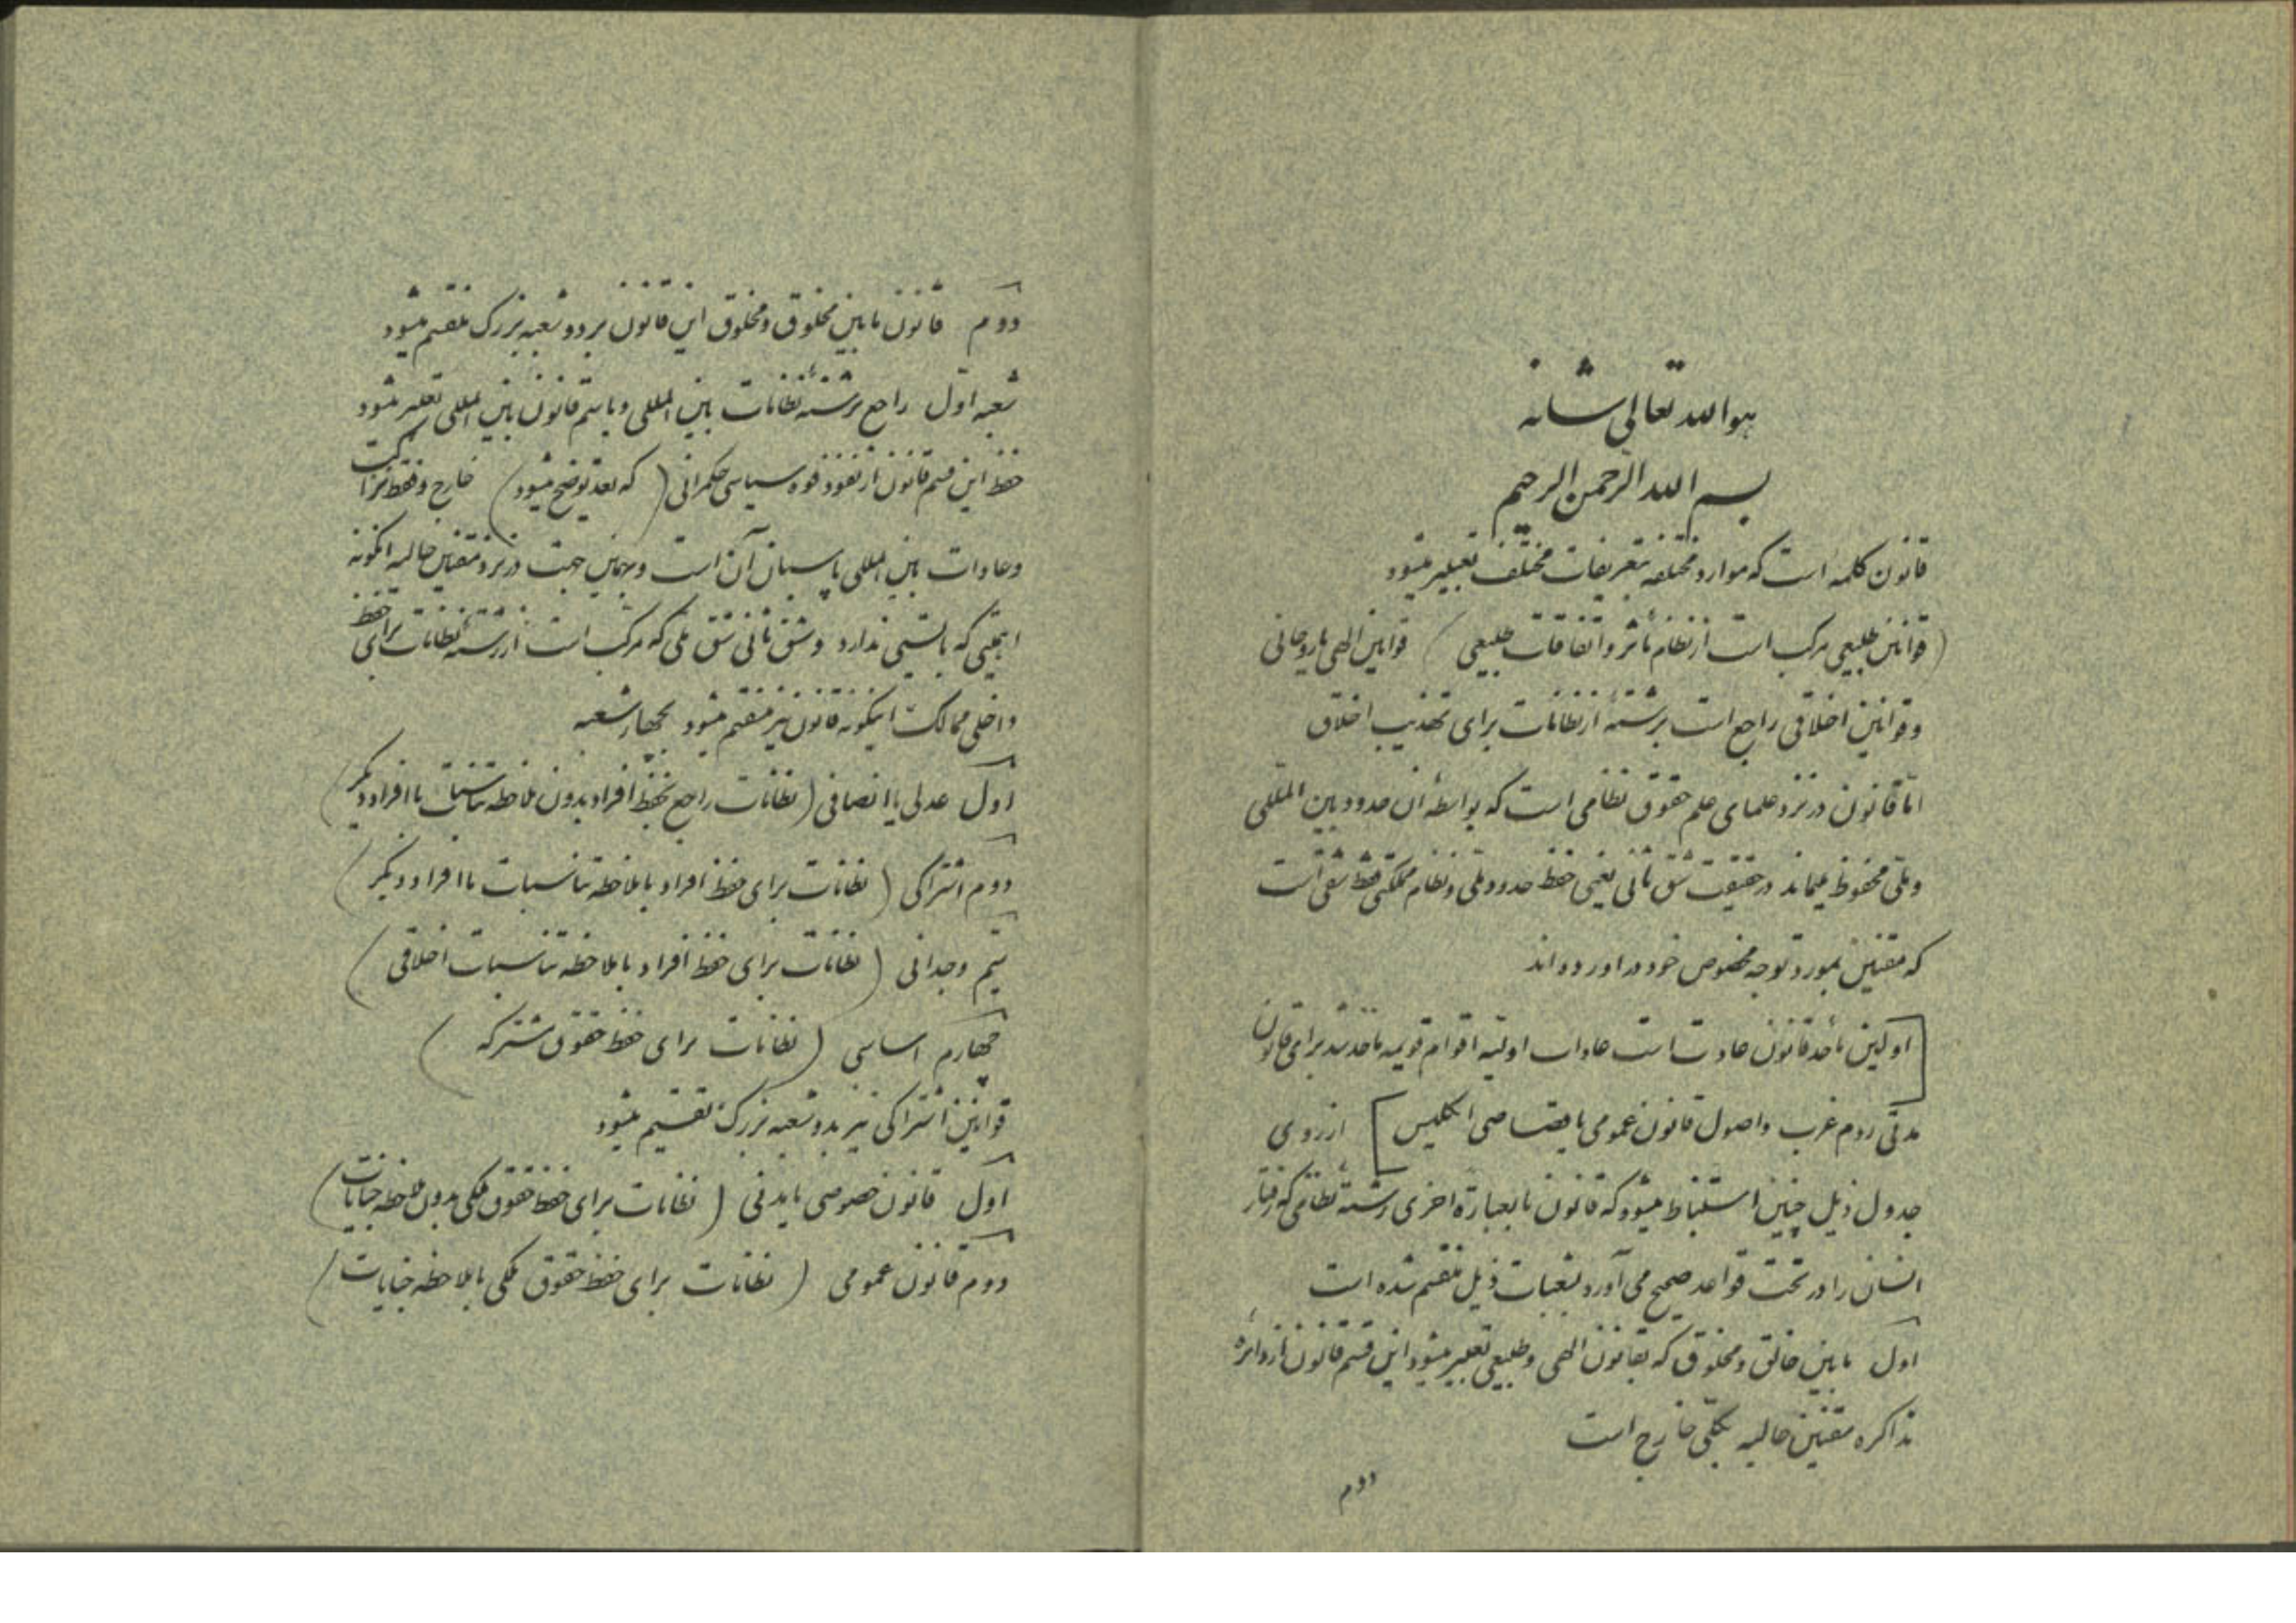 هو الله تعالی شانه
بسم الله الرحمن الرحیم
قانون کلمه است که موارد مختلفه بتعریفات مختلف تعبیر میشود
(قوانین طبیعی مرکب است از نظام تأثر و اتفاقات طبیعی) قوانین الهی یا روحانی
و قوانین اخلاقی راجع است برشتهٔ از نظامات برای تهذیب اخلاق
امّا قانون در نزد علمای علم حقوق نظامی است که بواسطهٔ آن حدود بین المللی
و ملّی محفوظ میماند در حقیقت شق ثانی یعنی حفظ حدود ملی و نظام مملکتی فقط شقی است
که مقنین بمورد توجه مخصوص خود در آورده اند
[اولین مأخذ قانون عادت است عادات اولیه اقوام قویمه مأخذ شد برای قانون
مدنی روم غرب و اصول قانون عمومی یا قصاصی انگلیس] از روی
جدول ذیل چنین استنباط میشود که قانون یا بعبارة اخری رشته نظامی که رفتار
انسان را در تحت قواعد صحیح می آورد بشعبات ذیل منقسم شده است
اول مابین خالق و مخلوق که بقانون الهی و طبیعی تعبیر میشود این قسم قانون از دائرهٔ
مذاکره مقنین حالیه بکلّی خارج است
دوم
دوم قانون مابین مخلوق و مخلوق این قانون بر دو شعبه بزرگ منقسم میشود
شعبه اوّل راجع برشته نظامات بین المللی و باسم قانون بین المللی تعبیر میشود
حفظ این قسم قانون از نفوذ قوه سیاسی حکمرانی (که بعد توضیح میشود) خارج و فقط نزاکت
و عادات بین المللی پاسبان آن است و بهمین جهت در نزد مقنین حالیه اینگونه
اهمیتی که بایستی ندارد و شق ثانی شق ملی که مرکب است از رشته نظامات برای حفظ
داخلی ممالک اینگونه قانون نیز منقسم میشود بچهار شعبه
اول عدلی یا انصافی (نظامات راجع بحفظ افراد بدون ملاحظه تناسبات با افراد دیگر)
دوم اشتراکی (نظامات برای حفظ افراد با ملاحظه تناسبات با افراد دیگر)
سیم وجدانی (نظامات برای حفظ افراد با ملاحظه تناسبات اخلاقی)
چهارم اساسی (نظامات برای حفظ حقوق مشترکه)
قوانین اشتراکی نیز بدو شعبه بزرگ تقسیم میشود
اول قانون خصوصی یا مدنی (نظامات برای حفظ حقوق ملکی بدون ملاحظه جنایات)
دوم قانون عمومی (نظامات برای حفظ حقوق ملکی با ملاحظه جنایات)